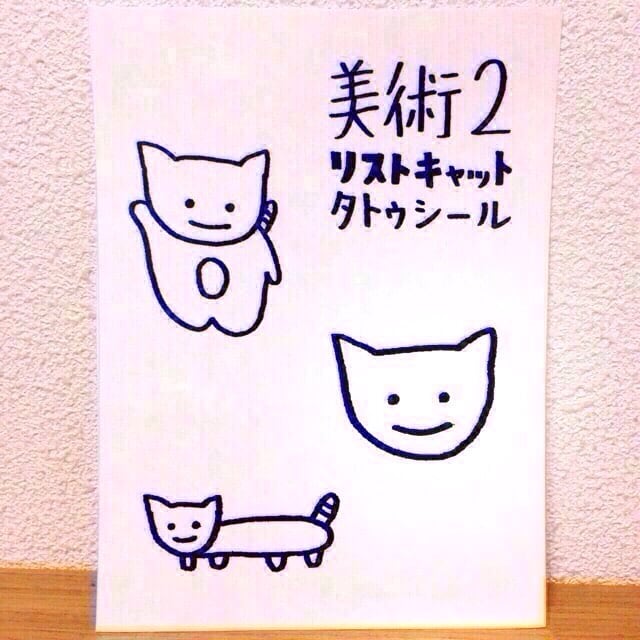 美術2
リストキャット
タトゥシール